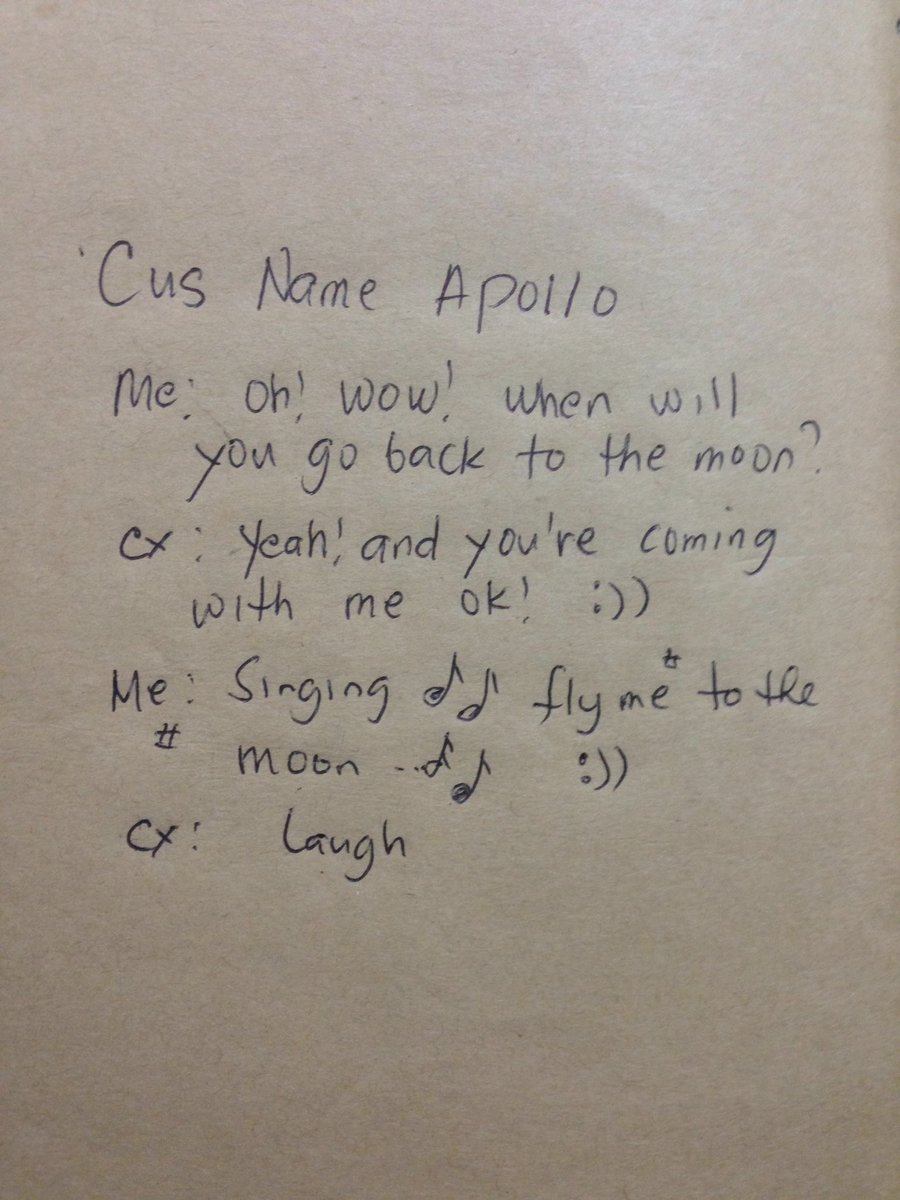 Cus Name Apollo
Me: Oh! wow! when will
you go back to the moon?
cx: Yeah! and you're coming
with me ok! :))
Me: Singing ♪♪ fly me # to the
# moon ..♪♪ :))
cx: Laugh